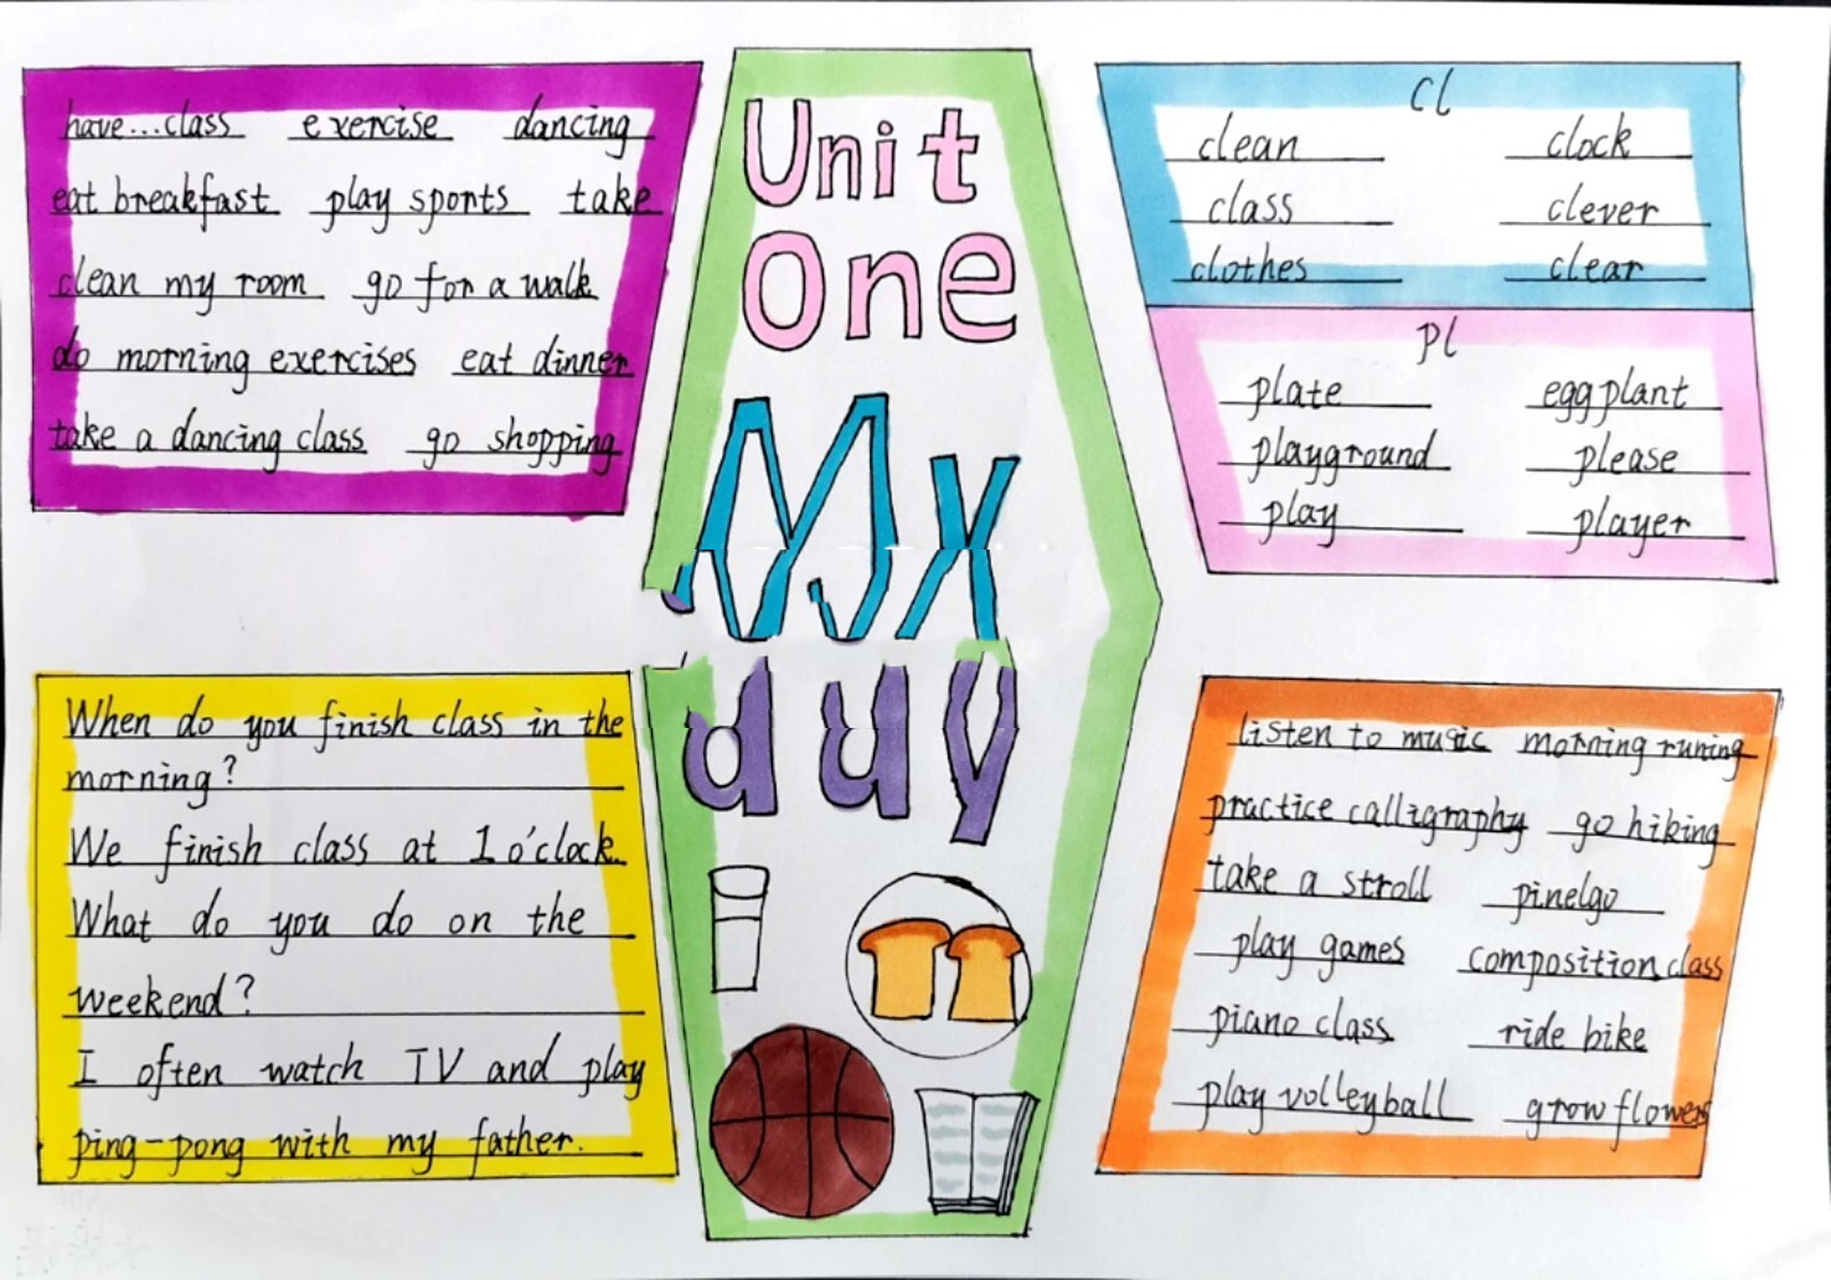 have...class exercise dancing
eat breakfast play sports take
clean my room go for a walk
do morning exercises eat dinner
take a dancing class go shopping
Unit
One
My
day
cl
clean clock
class clever
clothes clear
pl
plate eggplant
playground please
play player
When do you finish class in the
morning?
We finish class at 1 o'clock.
What do you do on the
weekend?
I often watch TV and play
ping-pong with my father.
listen to music morning runing
practice calligraphy go hiking
take a stroll pinelgo
play games composition class
piano class ride bike
play volleyball grow flowers